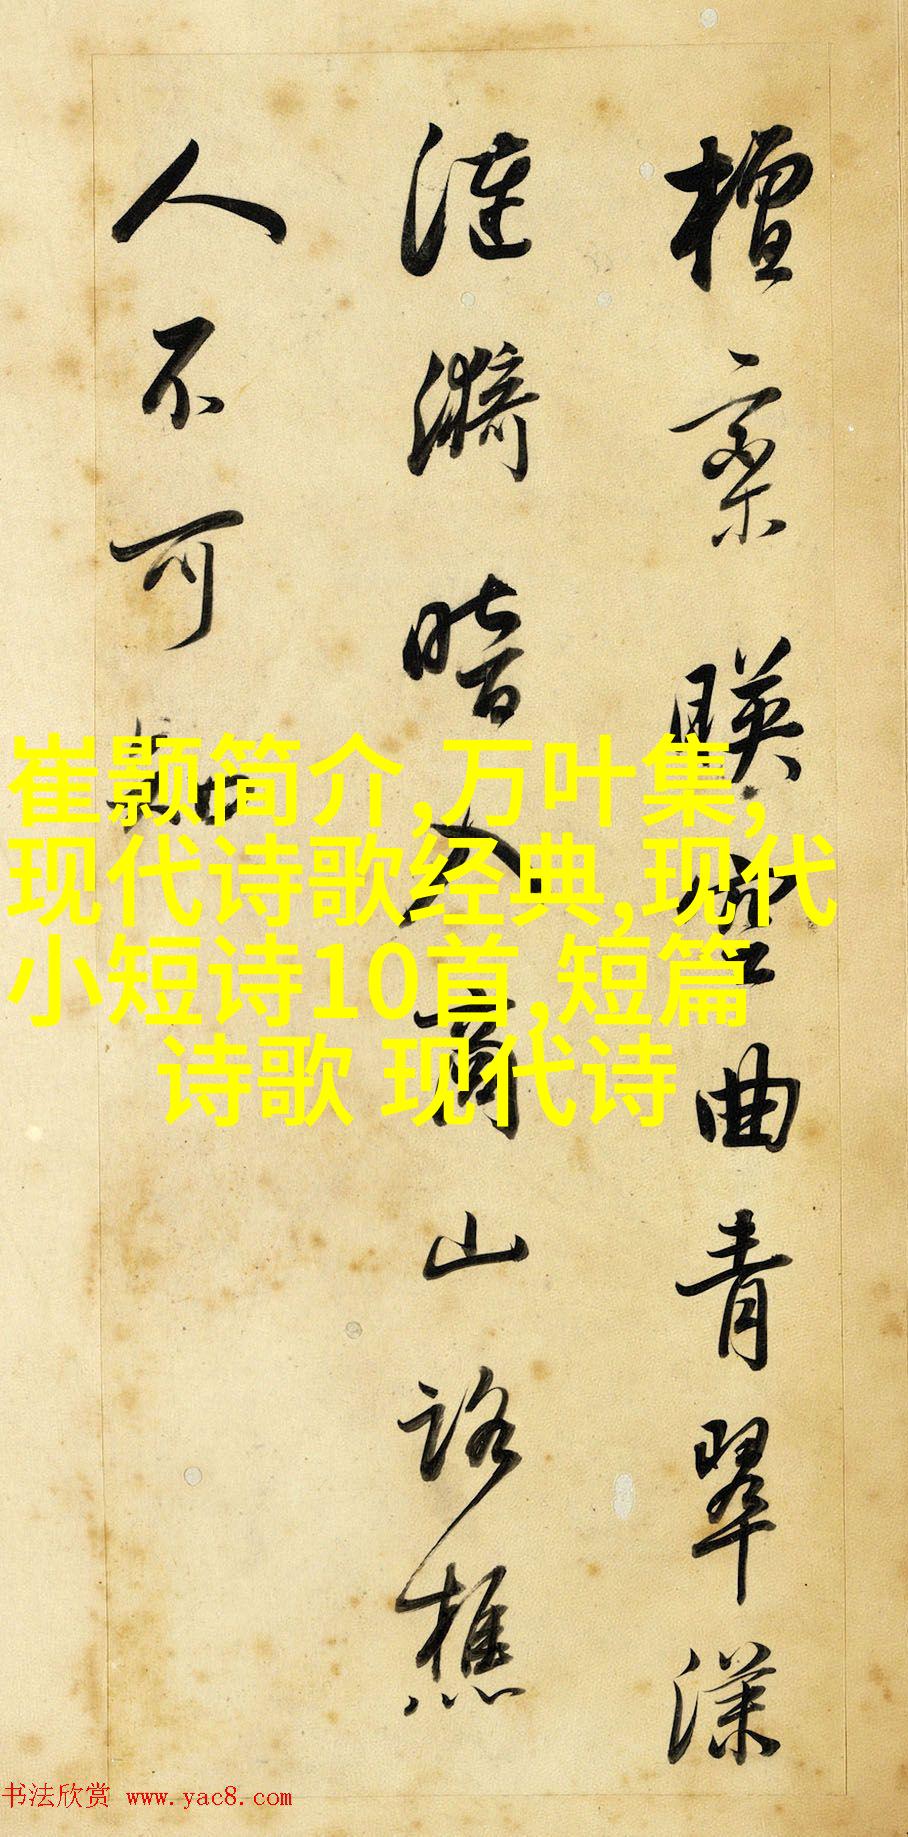 檀栾暎空曲青翠漾
涟漪暗入商山路樵
人不可知
崔颢简介,万叶集,
现代诗歌经典,现代
小短诗10首,短篇
诗歌 现代诗
书法欣赏 www.yac8.com